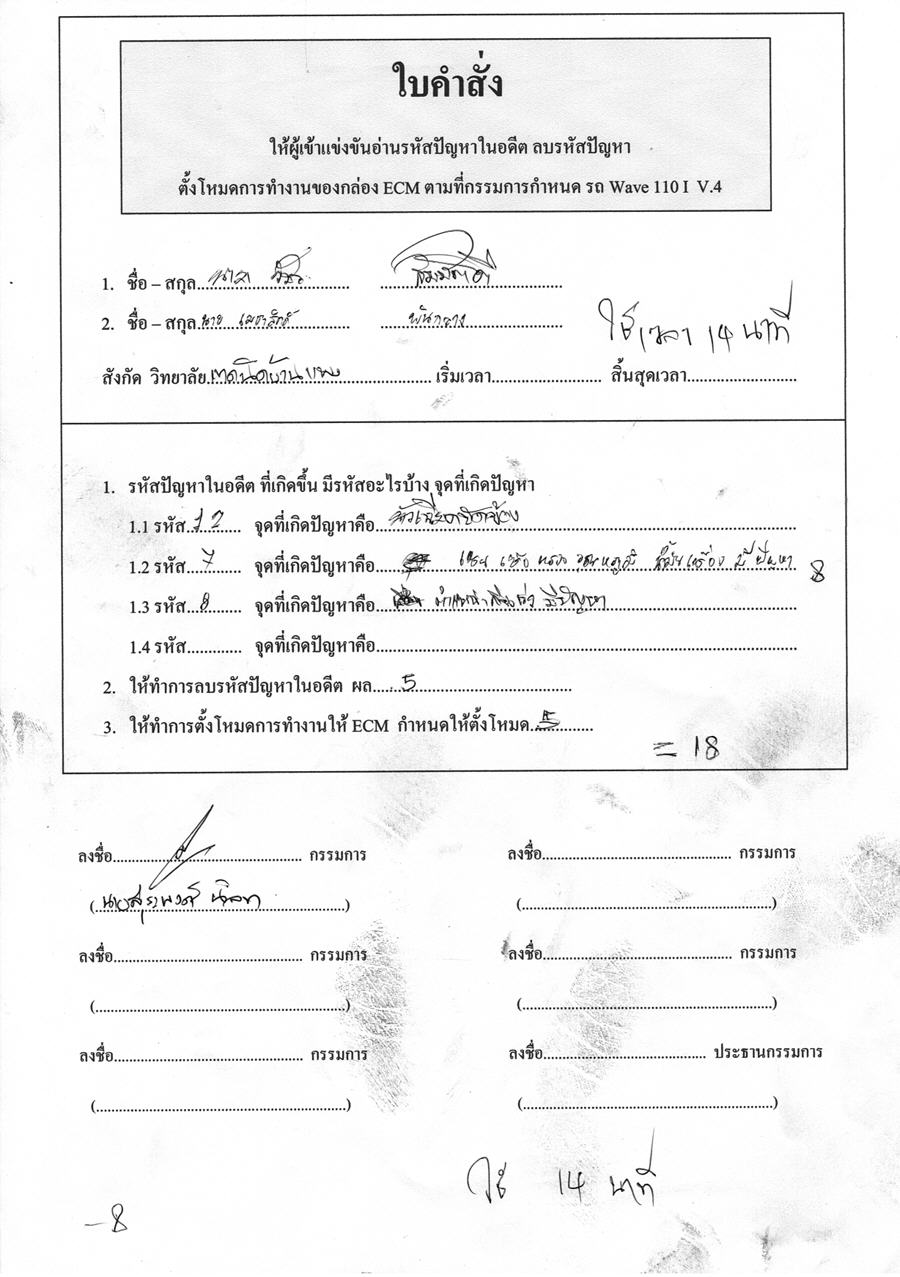 ใบคำสั่ง
ให้ผู้เข้าแข่งขันอ่านรหัสปัญหาในอดีต ลบรหัสปัญหา
ตั้งโหมดการทำงานของกล่อง ECM ตามที่กรรมการกำหนด รถ Wave 110 I V.4
1. ชื่อ – สกุล
2. ชื่อ – สกุล นาย
ใช้เวลา 14 นาที
สังกัด วิทยาลัย เริ่มเวลา สิ้นสุดเวลา
1. รหัสปัญหาในอดีต ที่เกิดขึ้น มีรหัสอะไรบ้าง จุดที่เกิดปัญหา
1.1 รหัส 12 จุดที่เกิดปัญหาคือ หัวฉีด
1.2 รหัส 7 จุดที่เกิดปัญหาคือ มีปัญหา 8
1.3 รหัส 8 จุดที่เกิดปัญหาคือ มีปัญหา
1.4 รหัส จุดที่เกิดปัญหาคือ
2. ให้ทำการลบรหัสปัญหาในอดีต ผล 5
3. ให้ทำการตั้งโหมดการทำงานให้ ECM กำหนดให้ตั้งโหมด 5
= 18
ลงชื่อ กรรมการ ลงชื่อ กรรมการ
(นาย )
ลงชื่อ กรรมการ ลงชื่อ กรรมการ
ลงชื่อ กรรมการ ลงชื่อ ประธานกรรมการ
ใช้ 14 นาที
– 8